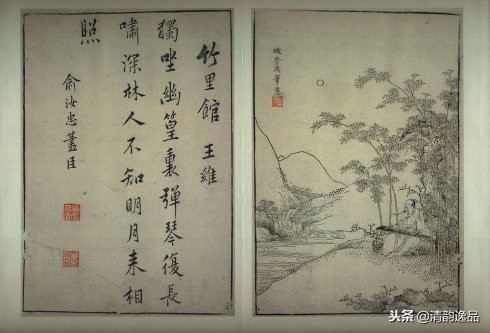 竹里館 王維
獨坐幽篁裏彈琴復長
嘯深林人不知明月來相
照
俞汝忠藎臣
头条 @清韵逸品